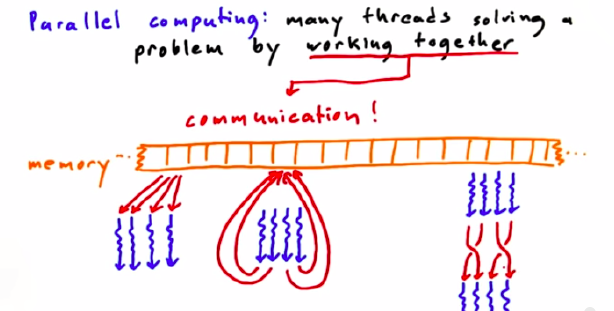 Parallel computing: many threads solving a
problem by working together
communication!
memory